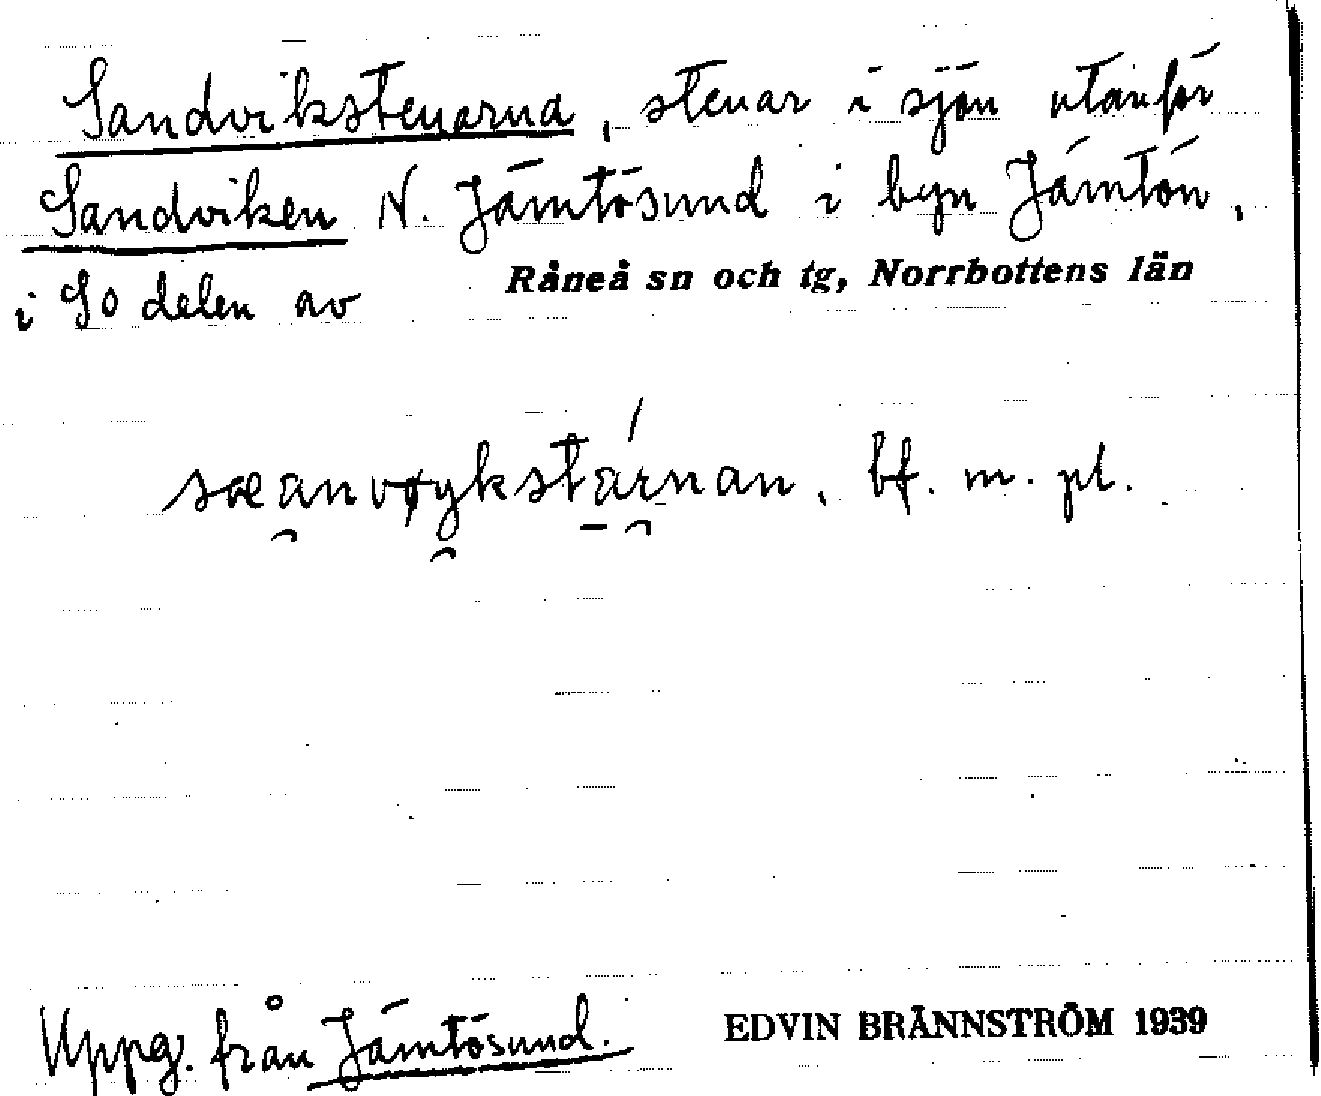 Sandvikstenarna, stenar i sjön utanför
Sandviken N. Jämtösund i byn Jämtön,
i SO delen av Råneå sn och tg, Norrbottens län
sæanvøykstáinan, bf. m. pl.
Uppg. från Jämtösund. EDVIN BRÄNNSTRÖM 1939